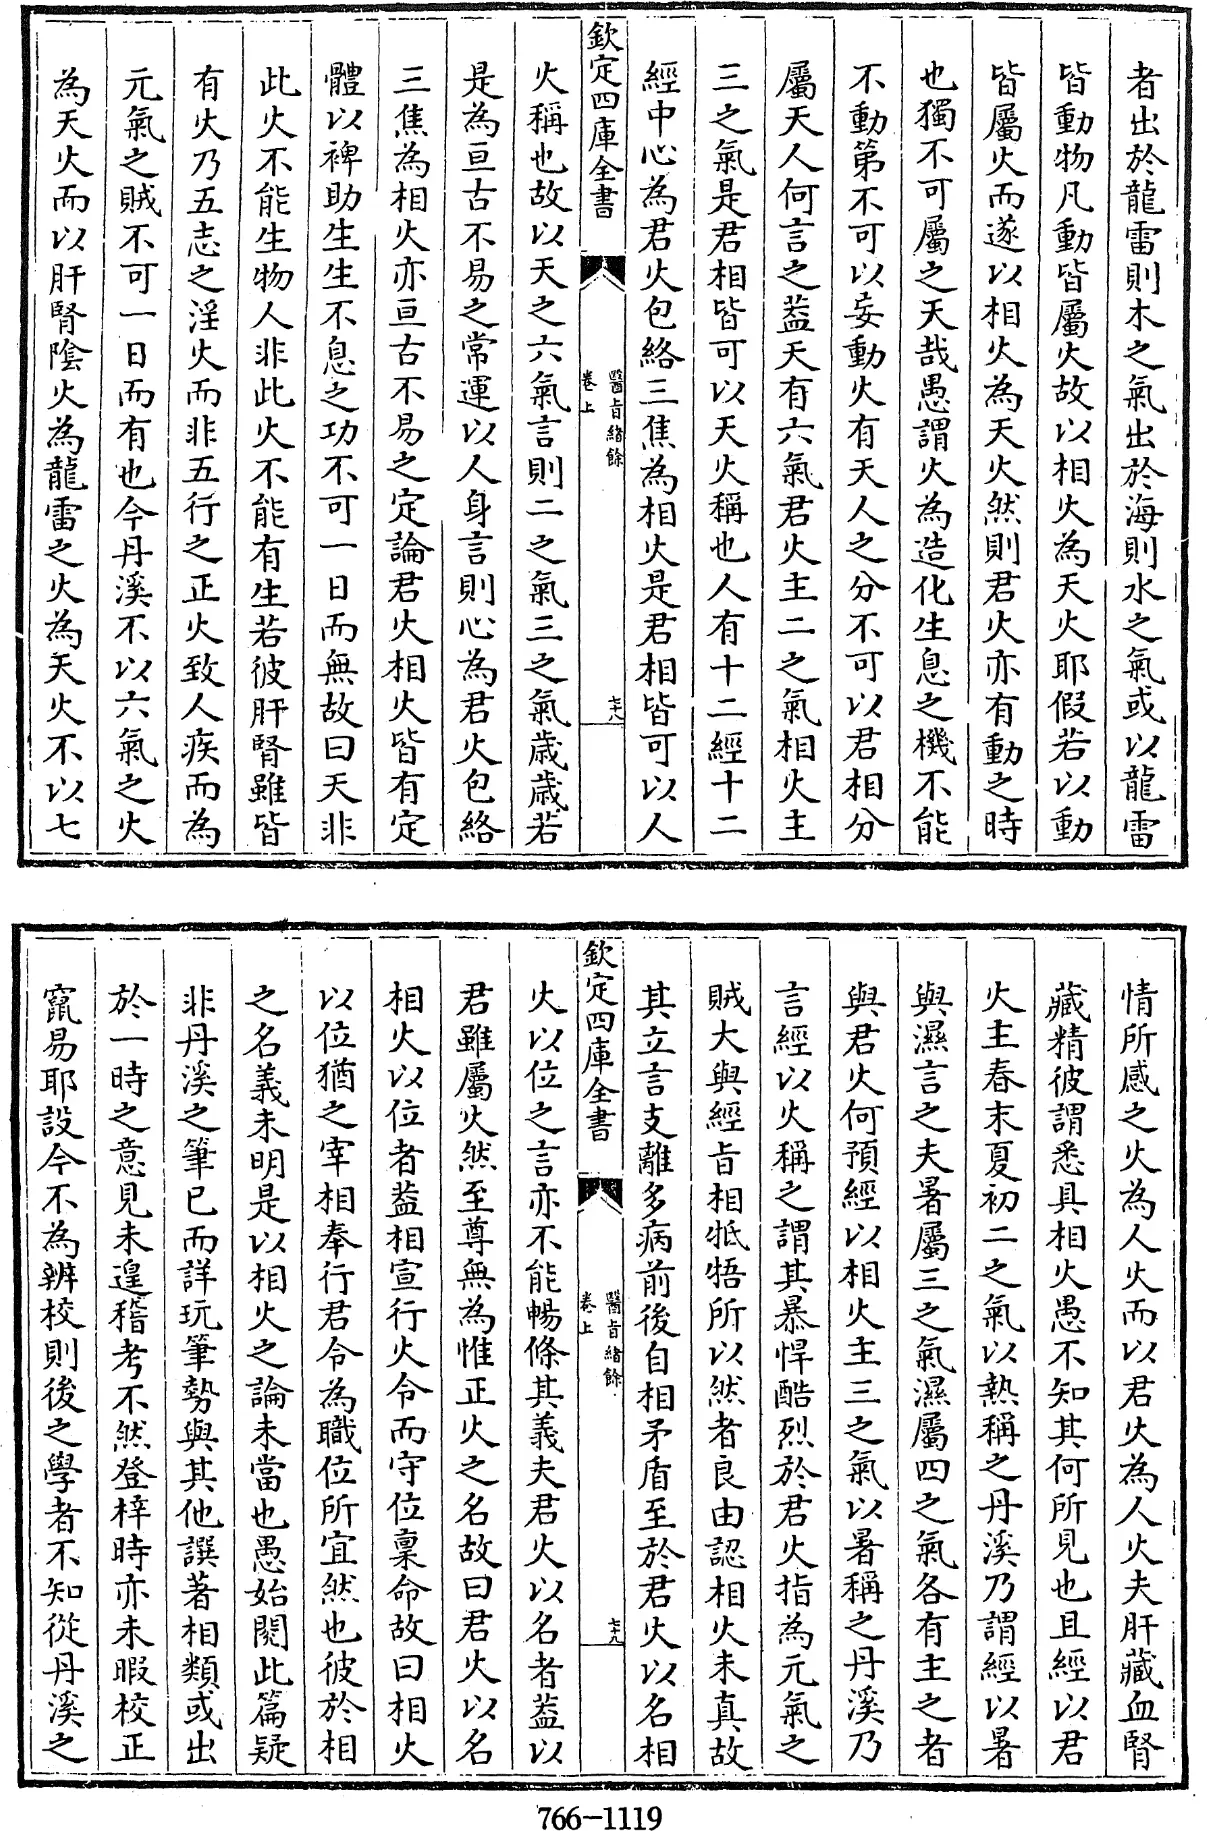 者出於龍雷則木之氣出於海則水之氣或以龍雷
皆動物凡動皆屬火故以相火為天火耶假若以動
皆屬火而遂以相火為天火然則君火亦有動之時
也獨不可屬之天哉愚謂火為造化生息之機不能
不動第不可以妄動火有天人之分不可以君相分
屬天人何言之葢天有六氣君火主二之氣相火主
三之氣是君相皆可以天火稱也人有十二經十二
經中心為君火包絡三焦為相火是君相皆可以人
欽定四庫全書
醫旨緒餘
卷上
七十八
火稱也故以天之六氣言則二之氣三之氣歲歲若
是為亘古不易之常運以人身言則心為君火包絡
三焦為相火亦亘古不易之定論君火相火皆有定
體以裨助生生不息之功不可一日而無故曰天非
此火不能生物人非此火不能有生若彼肝腎雖皆
有火乃五志之淫火而非五行之正火致人疾而為
元氣之賊不可一日而有也今丹溪不以六氣之火
為天火而以肝腎陰火為龍雷之火為天火不以七
情所感之火為人火而以君火為人火夫肝藏血腎
藏精彼謂悉具相火愚不知其何所見也且經以君
火主春末夏初二之氣以熱稱之丹溪乃謂經以暑
與濕言之夫暑屬三之氣濕屬四之氣各有主之者
與君火何預經以相火主三之氣以暑稱之丹溪乃
言經以火稱之謂其暴悍酷烈於君火指為元氣之
賊大與經旨相牴牾所以然者良由認相火未真故
其立言支離多病前後自相矛盾至於君火以名相
欽定四庫全書
醫旨緒餘
卷上
七十九
火以位之言亦不能暢條其義夫君火以名者葢以
君雖屬火然至尊無為惟正火之名故曰君火以名
相火以位者葢相宣行火令而守位稟命故曰相火
以位猶之宰相奉行君令為職位所宜然也彼於相
之名義未明是以相火之論未當也愚始閱此篇疑
非丹溪之筆已而詳玩筆勢與其他譔著相類或出
於一時之意見未遑稽考不然登梓時亦未暇校正
竄易耶設今不為辨校則後之學者不知從丹溪之
766-1119